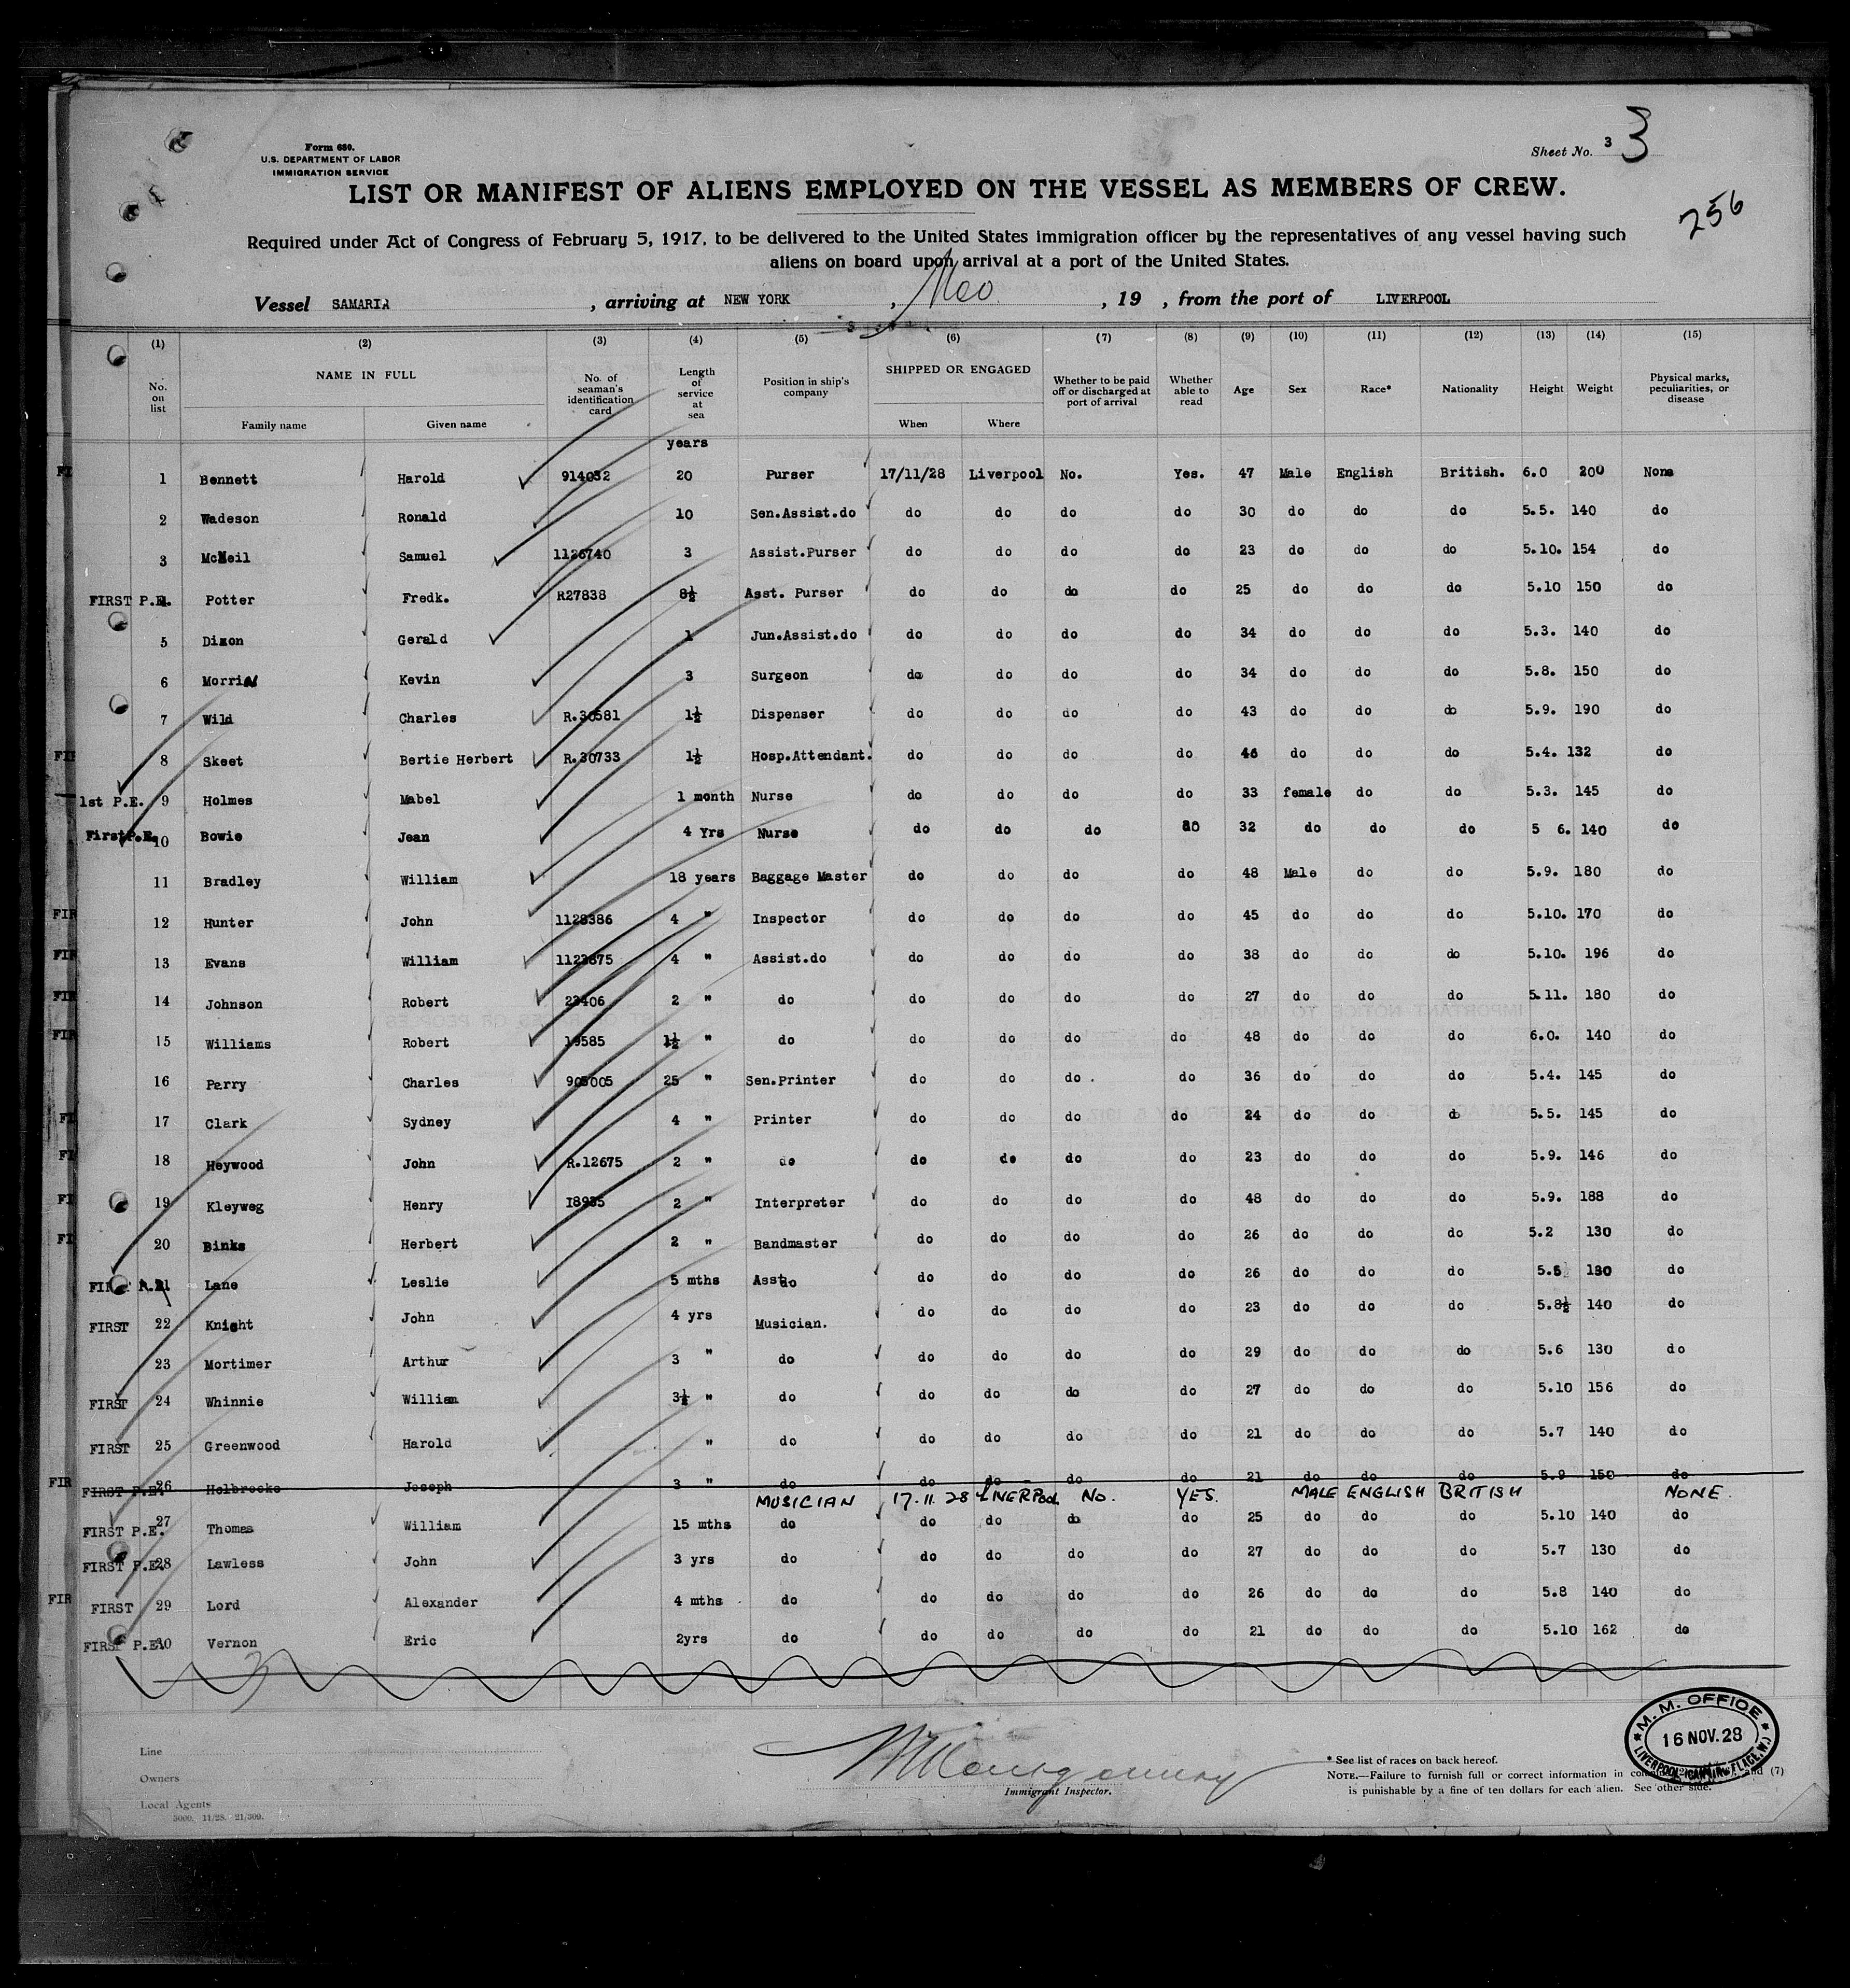 Form 680.
U.S. DEPARTMENT OF LABOR
IMMIGRATION SERVICE
Sheet No. 3 3
LIST OR MANIFEST OF ALIENS EMPLOYED ON THE VESSEL AS MEMBERS OF CREW.
256
Required under Act of Congress of February 5, 1917, to be delivered to the United States immigration officer by the representatives of any vessel having such
aliens on board upon arrival at a port of the United States.
Vessel SAMARIA , arriving at NEW YORK , , 19 , from the port of LIVERPOOL
(1) (2) (3) (4) (5) (6) (7) (8) (9) (10) (11) (12) (13) (14) (15)
No. on list NAME IN FULL Family name Given name No. of seaman's identification card Length of service at sea Position in ship's company SHIPPED OR ENGAGED When Where Whether to be paid off or discharged at port of arrival Whether able to read Age Sex Race* Nationality Height Weight Physical marks, peculiarities, or disease
years
FI 1 Bennett Harold 914032 20 Purser 17/11/28 Liverpool No. Yes. 47 Male English British. 6.0 200 None
2 Wadeson Ronald 10 Sen.Assist.do do do do do 30 do do do 5.5. 140 do
3 McNeil Samuel 1126740 3 Assist.Purser do do do do 23 do do do 5.10. 154 do
FIRST P.E. 4 Potter Fredk. R27838 8½ Asst. Purser do do do do 25 do do do 5.10 150 do
5 Dixon Gerald 1 Jun.Assist.do do do do do 34 do do do 5.3. 140 do
6 Kevin 3 Surgeon do do do do 34 do do do 5.8. 150 do
7 Wild Charles R.30581 1½ Dispenser do do do do 43 do do do 5.9. 190 do
FI 8 Skeet Bertie Herbert R.30733 1½ Hosp.Attendant. do do do do 46 do do do 5.4. 132 do
1st P.E. 9 Holmes Mabel 1 month Nurse do do do do 33 female do do 5.3. 145 do
First P.E. 10 Bowie Jean 4 Yrs Nurse do do do do 32 do do do 5 6. 140 do
11 Bradley William 18 years Baggage Master do do do do 48 Male do do 5.9. 180 do
FIR 12 Hunter John 1128386 4 " Inspector do do do do 45 do do do 5.10. 170 do
FIR 13 Evans William 1123875 4 " Assist.do do do do do 38 do do do 5.10. 196 do
FIR 14 Johnson Robert 23406 2 " do do do do do 27 do do do 5.11. 180 do
FIR 15 Williams Robert 19585 1½ " do do do do do 48 do do do 6.0. 140 do
16 Perry Charles 905005 25 " Sen.Printer do do do do 36 do do do 5.4. 145 do
FI 17 Clark Sydney 4 " Printer do do do do 24 do do do 5.5. 145 do
FI 18 Heywood John R.12675 2 " do do do do do 23 do do do 5.9. 146 do
FI 19 Kleyweg Henry 18935 2 " Interpreter do do do do 48 do do do 5.9. 188 do
FI 20 Binks Herbert 2 " Bandmaster do do do do 26 do do do 5.2 130 do
21 Lane Leslie 5 mths Asst.do do do do do 26 do do do 5.5 130 do
FIRST 22 Knight John 4 yrs Musician. do do do do 23 do do do 5.8½ 140 do
23 Mortimer Arthur 3 " do do do do do 29 do do do 5.6 130 do
FIRST 24 Whinnie William 3½ " do do do do do 27 do do do 5.10 156 do
FIRST 25 Greenwood Harold " do do do do do 21 do do do 5.7 140 do
FIR FIRST P.E. 26 Holbrooke Joseph 3 " do do do do do 21 do do do 5.9 150 do
MUSICIAN 17.11.28 LIVERPool No. YES. MALE ENGLISH BRITISH NONE.
FIRST P.E. 27 Thomas William 15 mths do do do do do 25 do do do 5.10 140 do
FIRST P.E. 28 Lawless John 3 yrs do do do do do 27 do do do 5.7 130 do
FIR FIRST 29 Lord Alexander 4 mths do do do do do 26 do do do 5.8 140 do
FIRST P.E. 30 Vernon Eric 2yrs do do do do do 21 do do do 5.10 162 do
3
M. M. OFFICE
16 NOV. 28
LIVERPOOL (CANNING PLACE, W.)
Line
Owners
Local Agents
5000. 11/28. 21/309.
Montgomery
Immigrant Inspector.
* See list of races on back hereof.
NOTE.—Failure to furnish full or correct information in and (7)
is punishable by a fine of ten dollars for each alien. See other side.